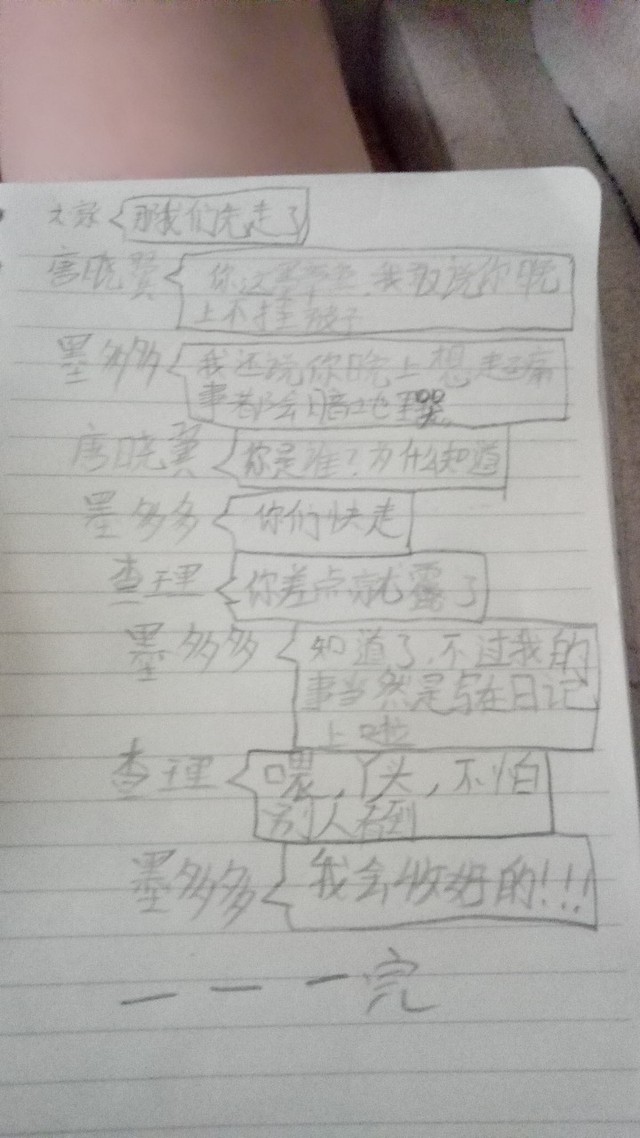 那我们先走了
唐晓翼 你这 我敢说你晚
上不 被子
墨多多 我还说你晚上想起痛
事都会暗地里哭
唐晓翼 你是谁?为什么知道
墨多多 你们快走
查理 你差点就露了
墨多多 知道了,不过我的
事当然是写在日记
上啦
查理 喂,丫头,不怕
别人看到
墨多多 我会收好的!!!
———完